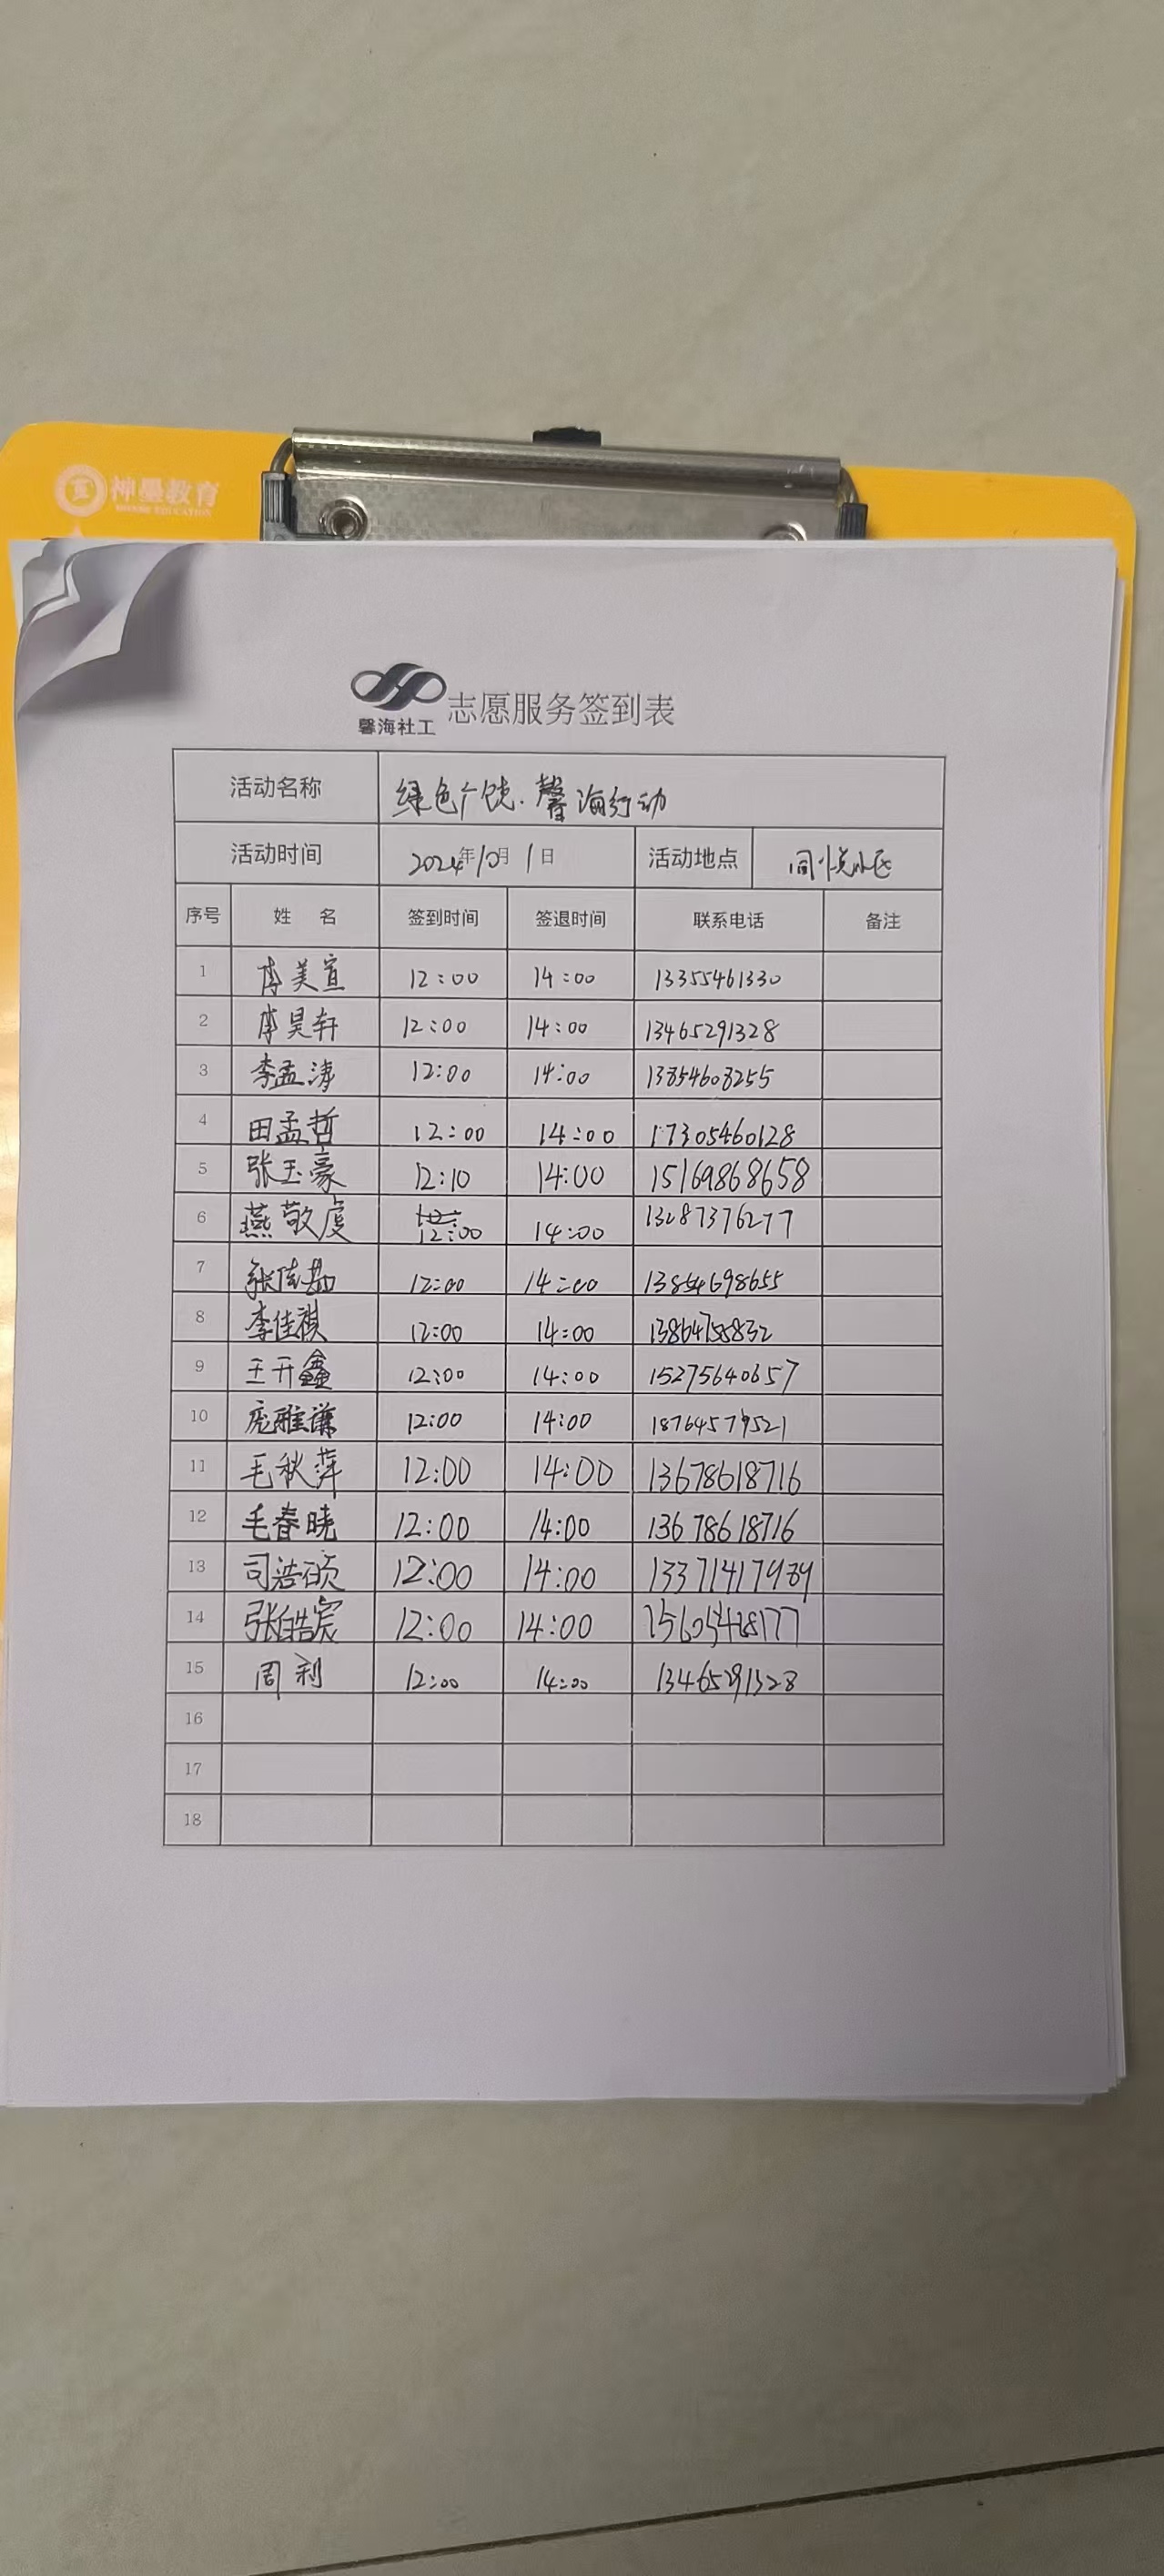 神墨教育
SHENMO EDUCATION
馨海社工 志愿服务签到表
活动名称 绿色广饶.馨海行动
活动时间 2024年10月1日 活动地点 同悦小区
序号 姓 名 签到时间 签退时间 联系电话 备注
1 李美萱 12:00 14:00 13355461330
2 李昊轩 12:00 14:00 13465291328
3 李孟涛 12:00 14:00 13854608255
4 田孟哲 12:00 14:00 17305460128
5 张玉豪 12:10 14:00 15169868658
6 燕敬虔 12:00 14:00 13287376277
7 12:00 14:00 13854698655
8 李佳祺 12:00 14:00 13864788832
9 王开鑫 12:00 14:00 15275640657
10 庞雅谦 12:00 14:00 18764579521
11 毛秋萍 12:00 14:00 13678618716
12 毛春晓 12:00 14:00 13678618716
13 司浩硕 12:00 14:00 13371417989
14 张皓宸 12:00 14:00
15 周利 12:00 14:00 13465291328
16
17
18